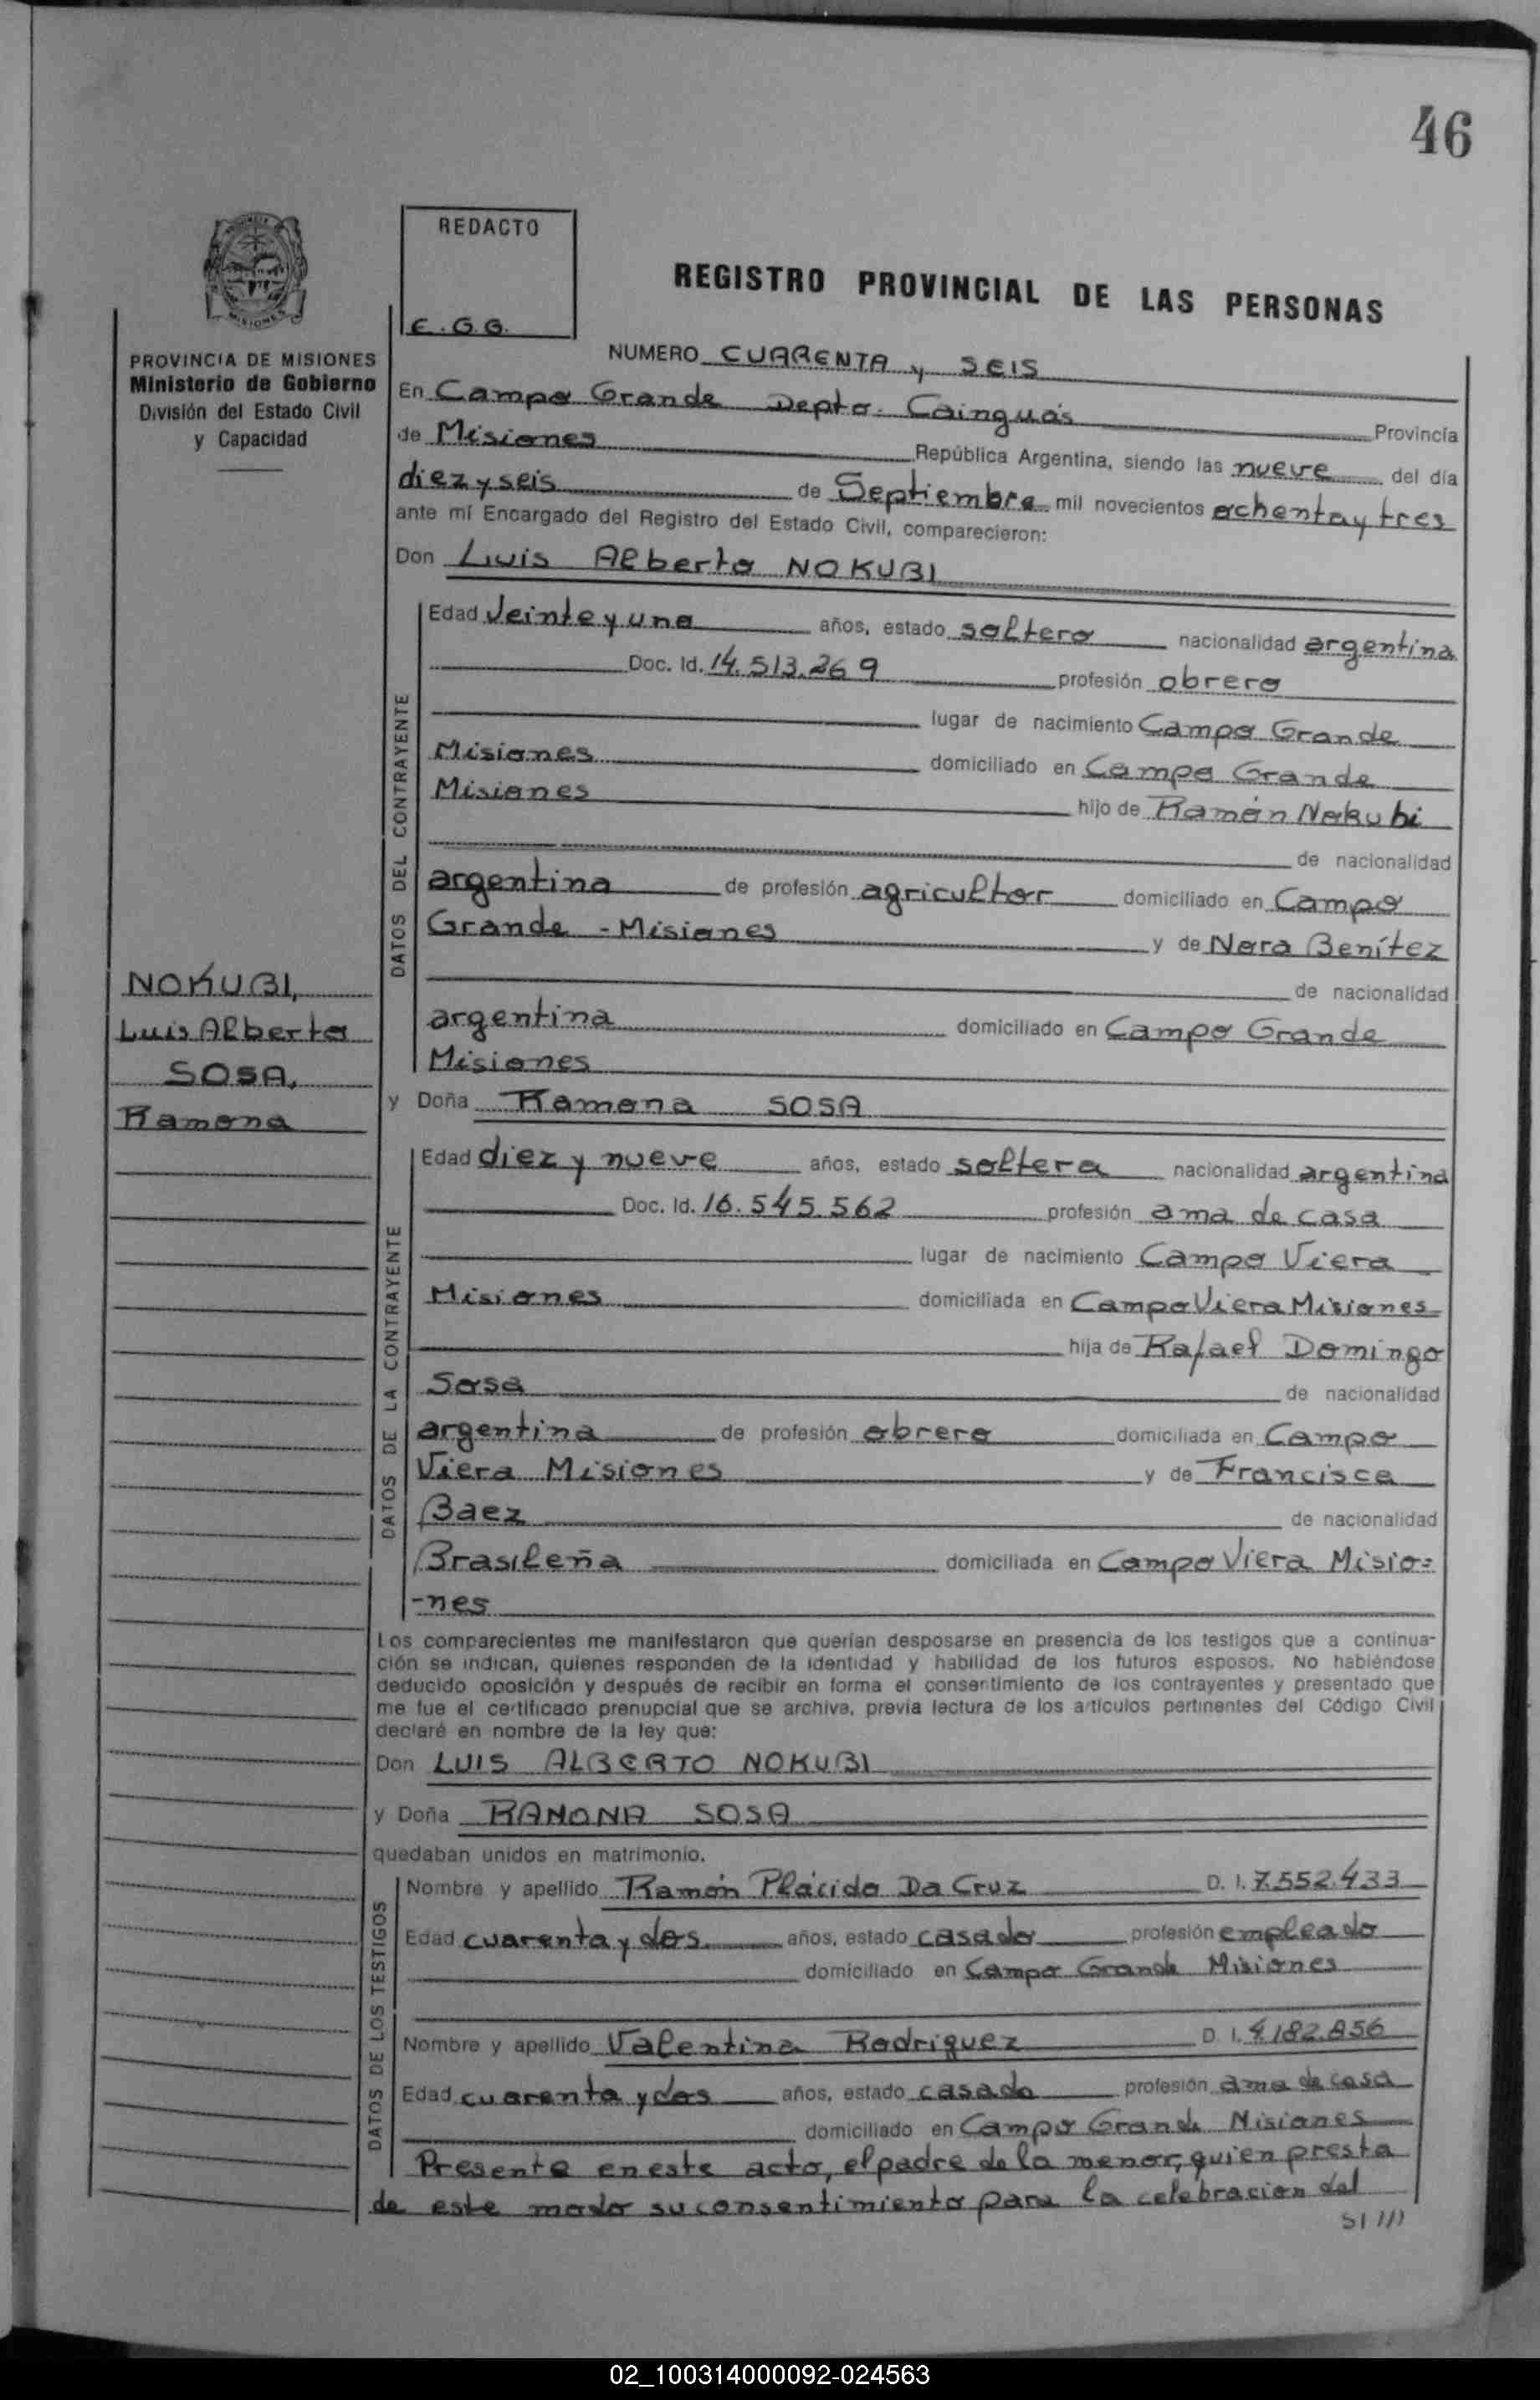 46
REDACTO
E.G.G.
REGISTRO PROVINCIAL DE LAS PERSONAS
PROVINCIA DE MISIONES
Ministerio de Gobierno
División del Estado Civil
y Capacidad
NUMERO CUARENTA y SEIS
En Campo Grande Depto. Cainguás Provincia
de Misiones República Argentina, siendo las nueve del día
diez y seis de Septiembre mil novecientos ochenta y tres
ante mí Encargado del Registro del Estado Civil, comparecieron:
Don Luis Alberto NOKUBI
DATOS DEL CONTRAYENTE
Edad Veinte y uno años, estado soltero nacionalidad argentina
Doc. Id. 14.513.269 profesión obrero
lugar de nacimiento Campo Grande
Misiones domiciliado en Campo Grande
Misiones hijo de Ramón Nokubi
de nacionalidad
argentina de profesión agricultor domiciliado en Campo
Grande - Misiones y de Nora Benítez
de nacionalidad
argentina domiciliado en Campo Grande
Misiones
NOKUBI,
Luis Alberto
SOSA,
Ramona
y Doña Ramona SOSA
DATOS DE LA CONTRAYENTE
Edad diez y nueve años, estado soltera nacionalidad argentina
Doc. Id. 16.545.562 profesión ama de casa
lugar de nacimiento Campo Viera
Misiones domiciliada en Campo Viera Misiones
hija de Rafael Domingo
Sosa de nacionalidad
argentina de profesión obrero domiciliada en Campo
Viera Misiones y de Francisca
Baez de nacionalidad
Brasileña domiciliada en Campo Viera Misio=
-nes
Los comparecientes me manifestaron que querían desposarse en presencia de los testigos que a continua-
ción se indican, quienes responden de la identidad y habilidad de los futuros esposos. No habiéndose
deducido oposición y después de recibir en forma el consentimiento de los contrayentes y presentado que
me fue el certificado prenupcial que se archiva, previa lectura de los artículos pertinentes del Código Civil
declaré en nombre de la ley que:
Don LUIS ALBERTO NOKUBI
y Doña RAMONA SOSA
quedaban unidos en matrimonio.
DATOS DE LOS TESTIGOS
Nombre y apellido Ramón Plácido Da Cruz D. I. 7.552.433
Edad cuarenta y dos años, estado casado profesión empleado
domiciliado en Campo Grande Misiones
Nombre y apellido Valentina Rodriguez D. I. 4.182.856
Edad cuarenta y dos años, estado casado profesión ama de casa
domiciliado en Campo Grande Misiones
Presente en este acto, el padre de la menor, quien presta
de este modo su consentimiento para la celebracion del
02_100314000092-024563